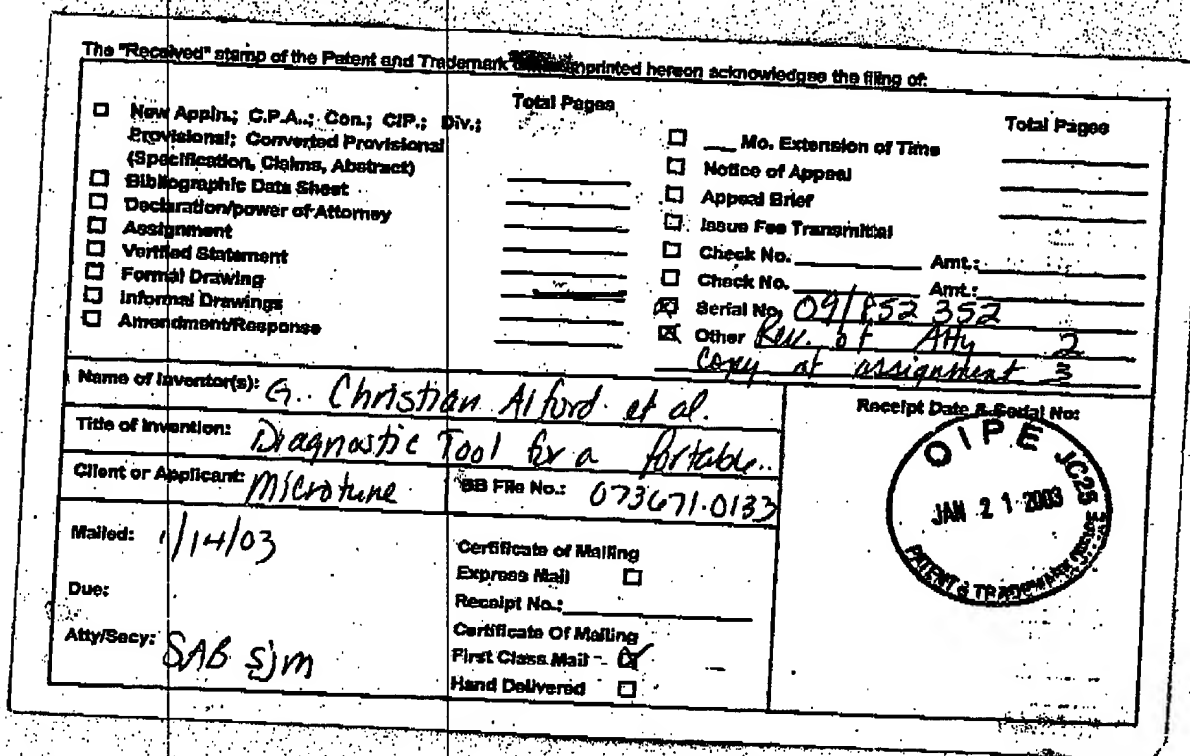 The "Received" stamp of the Patent and Trademark imprinted hereon acknowledges the filing of:
Total Pages
New Appln.; C.P.A..; Con.; CIP.; Div.;
Provisional; Converted Provisional
(Specification, Claims, Abstract)
Bibliographic Data Sheet
Declaration/power of Attorney
Assignment
Verified Statement
Formal Drawing
Informal Drawings
Amendment/Response
Total Pages
___ Mo. Extension of Time
Notice of Appeal
Appeal Brief
Issue Fee Transmittal
Check No. ________ Amt.:
Check No. ________ Amt.:
Serial No. 09/852 352
Other Rev. of Atty 2
Copy of assignment 3
Name of Inventor(s): G. Christian Alford et al.
Title of Invention: Diagnostic Tool for a Portable..
Client or Applicant: Microtune
BB File No.: 073671.0133
Receipt Date & Serial No:
OIPE JC25
JAN 21 2003
PATENT & TRADEMARK
Mailed: 1/14/03
Due:
Atty/Secy: SAB sjm
Certificate of Mailing
Express Mail
Receipt No.:
Certificate Of Mailing
First Class Mail
Hand Delivered